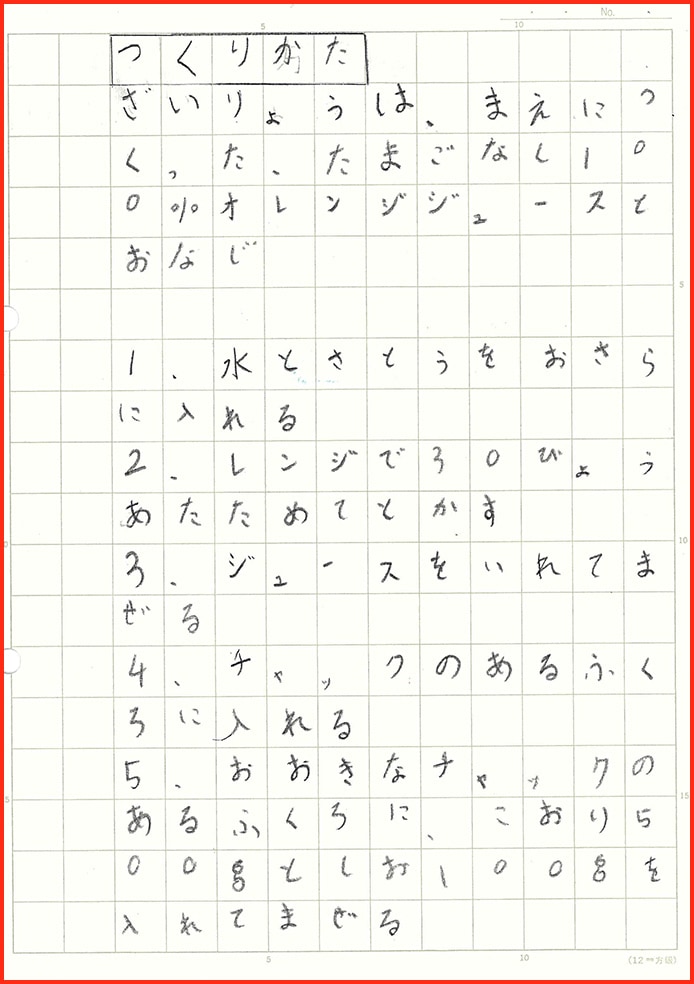 No.
5 10
つくりかた
ざいりょうは、まえにつ
くった、たまごなし10
0%オレンジジュースと
おなじ
5
1、水とさとうをおさら
に入れる
2、レンジで30びょう
あたためてとかす
10
3、ジュースをいれてま
ぜる
4、チャックのあるふく
ろに入れる
5、おおきなチャックの
15
あるふくろに、こおり5
00gとしお100gを
入れてまぜる
5 10